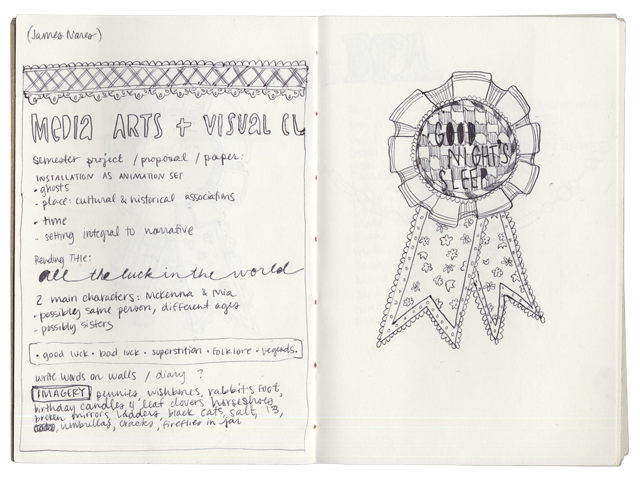 (James Nares)
MEDIA ARTS + VISUAL CL
semester project / proposal / paper:
INSTALLATION AS ANIMATION SET
• ghosts
- place: cultural & historical associations
• time
- setting integral to narrative
Reading Title:
all the luck in the world
2 main characters: McKenna & Mia
• possibly same person, different ages
- possibly sisters
• good luck • bad luck • superstition • folklore • legends •
write words on walls / diary ?
IMAGERY pennies, wishbones, rabbit's foot,
birthday candles 4 leaf clovers horseshoes,
broken mirrors, ladders, black cats, salt, 13,
umbrellas, cracks, fireflies in jar
GOOD
NIGHT'S
SLEEP